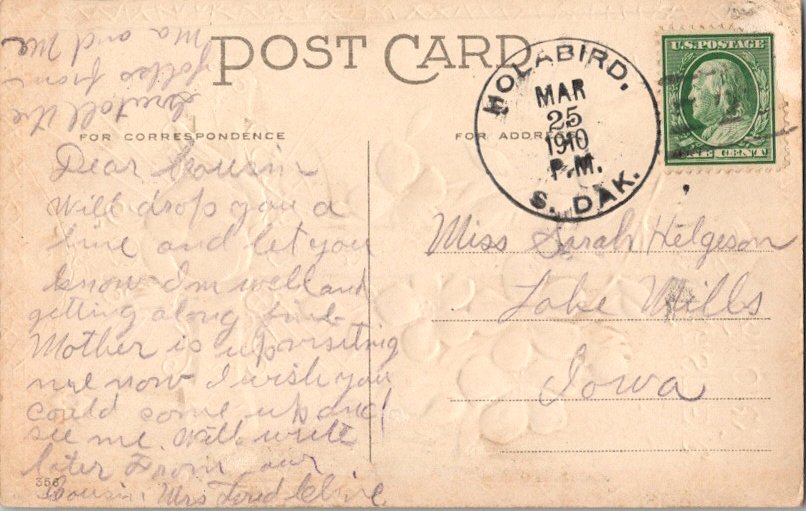 POST CARD
FOR CORRESPONDENCE
FOR ADDR
HOLABIRD.
MAR
25
1910
P.M.
S. DAK.
U.S. POSTAGE
Dear Cousin
Will drop you a
line and let you
know Im well and
getting along fine
Mother is up visiting
me now I wish you
could come up and
see me. Will write
later From your
Cousin, Mrs
356
tell the
folks from
Ma and Me
Miss Sarah Helgeson
Lake Mills
Iowa